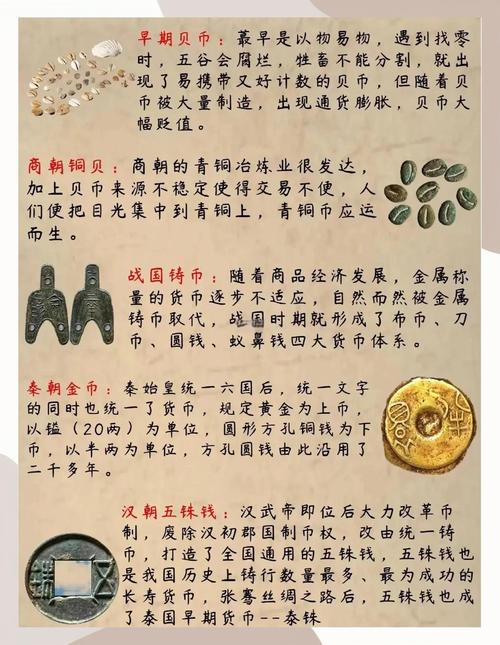 早期贝币：蕞早是以物易物，遇到找零
时，五谷会腐烂，牲畜不能分割，就出
现了易携带又好计数的贝币，但随着贝
币被大量制造，出现通货膨胀，贝币大
幅贬值。
商朝铜贝：商朝的青铜冶炼业很发达，
加上贝币来源不稳定使得交易不便，人
们便把目光集中到青铜上，青铜币应运
而生。
战国铸币：随着商品经济发展，金属称
量的货币逐步不适应，自然而然被金属
铸币取代，战国时期就形成了布币、刀
币、圆钱、蚁鼻钱四大货币体系。
秦朝金币：秦始皇统一六国后，统一文字
的同时也统一了货币，规定黄金为上币，
以镒（20两）为单位，圆形方孔铜钱为下
币，以半两为单位，方孔圆钱由此沿用了
二千多年。
汉朝五铢钱：汉武帝即位后大力改革币
制，废除汉初郡国制币权，改由统一铸
币，打造了全国通用的五铢钱，五铢钱也
是我国历史上铸行数量最多、最为成功的
长寿货币，张骞丝绸之路后，五铢钱也成
了泰国早期货币--泰铢